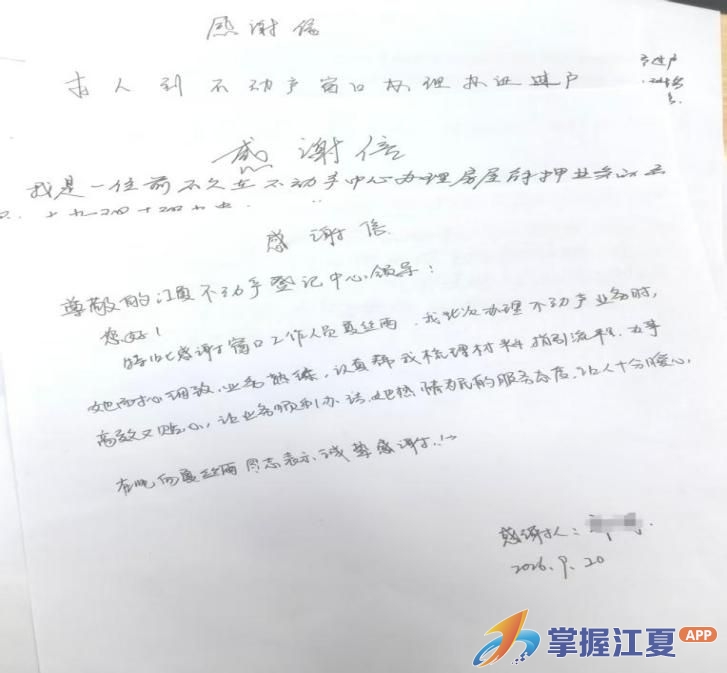 感谢信
本人到不动产窗口办理办证过户
感谢信
我是一位前不久在不动产中心办理房屋
感谢信
尊敬的江夏不动产登记中心领导：
您好！
特此感谢窗口工作人员夏丝雨，我此次办理不动产业务时，
她耐心细致、业务熟练，认真帮我梳理材料、指引流程，办事
高效又贴心，让业务顺利办结。她热情为民的服务态度，让人十分暖心，
在此向夏丝雨同志表示诚挚感谢！
感谢人：
2026.9.20
掌握江夏 APP